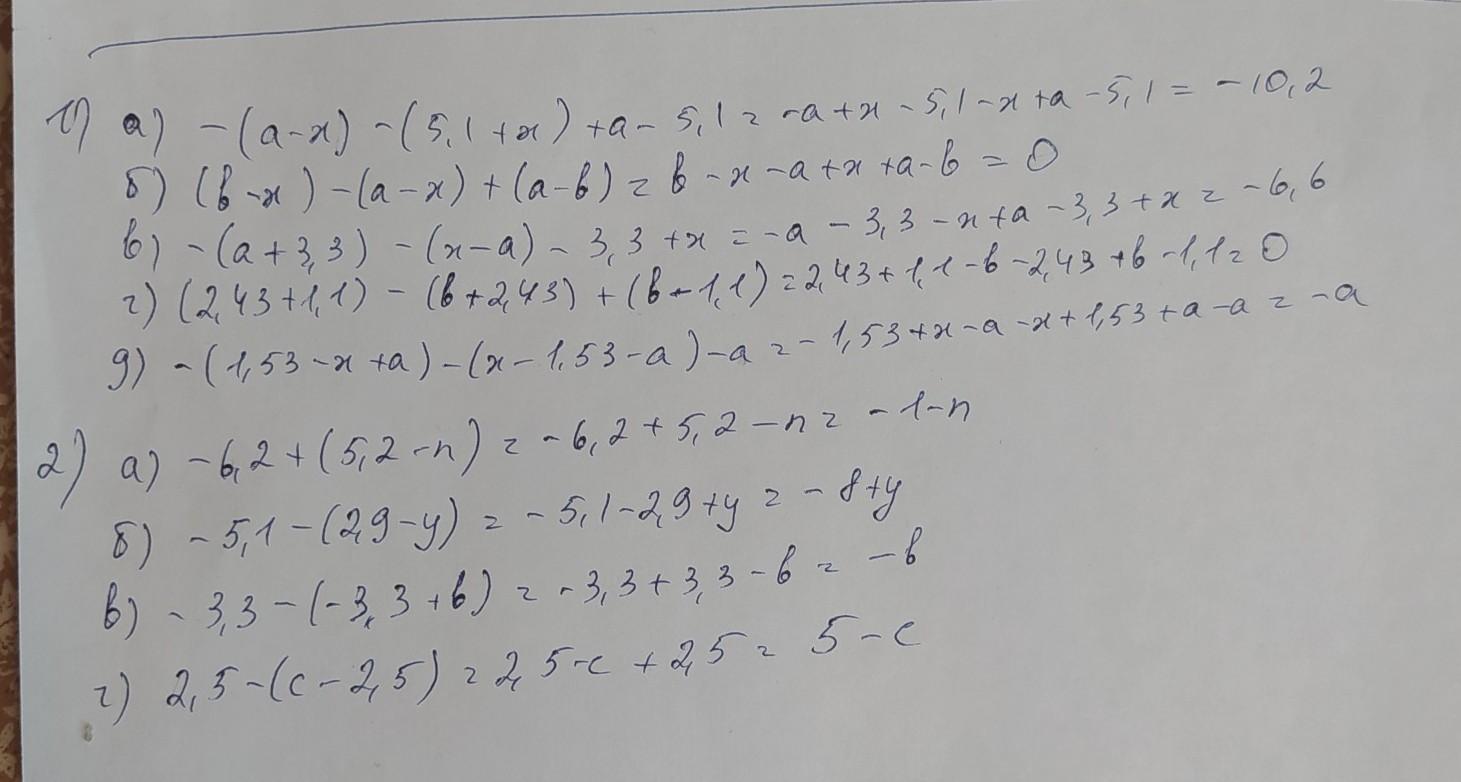 1) а) -(a-x) -(5,1+x)+a- 5,1= -a+x-5,1-x+a-5,1= -10,2
б) (b-x)-(a-x)+(a-b)= b-x-a+x+a-b= 0
в) -(a+3,3) -(x-a)- 3,3+x= -a-3,3-x+a-3,3+x= -6,6
г) (2,43+1,1) - (b+2,43)+(b-1,1)=2,43+1,1-b-2,43+b-1,1=0
д) -(1,53-x+a)-(x-1,53-a)-a=-1,53+x-a-x+1,53+a-a= -a
2) а) -6,2+(5,2-n)= -6,2+5,2-n= -1-n
б) -5,1-(2,9-y)= -5,1-2,9+y= -8+y
в) -3,3-(-3,3+b)= -3,3+3,3-b= -b
г) 2,5-(c-2,5)=2,5-c+2,5= 5-c